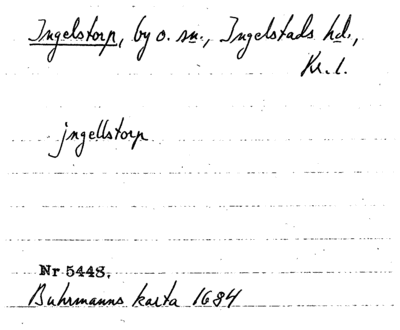 Ingelstorp, by o. sn., Ingelstads hd.,
Kr. l.
jngellstorp
Nr 5448.
Buhrmanns karta 1684